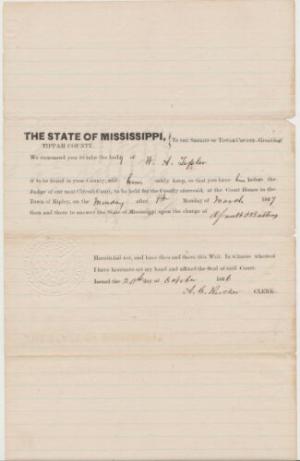 THE STATE OF MISSISSIPPI, } To the Sheriff of Tippah County—Greeting:
TIPPAH COUNTY.
We command you to take the body of W. A.
if to be found in your County, and him safely keep, so that you have him before the
Judge of our next Circuit Court, to be held for the County aforesaid, at the Court House in the
Town of Ripley, on the Monday after 4th Monday of March 1867
then and there to answer the State of Mississippi upon the charge of Assault & Battery
Herein fail not, and have then and there this Writ. In witness whereof
I have hereunto set my hand and affixed the Seal of said Court.
Issued the day of October 1866
CLERK.